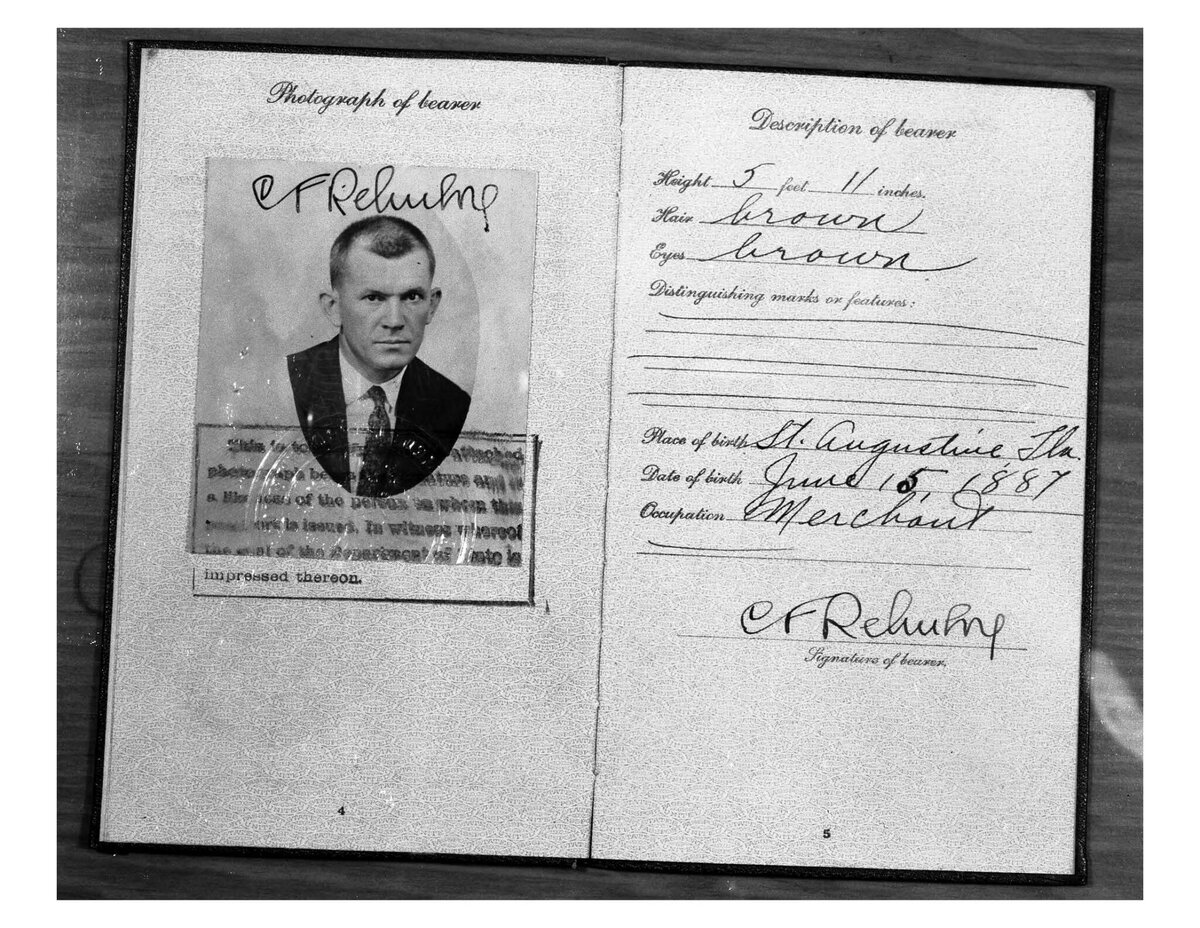 Photograph of bearer
C F
This is to attached
photograph signature and is
a likeness of the person to whom this
passport is issued. In witness whereof
the seal of the Department of State is
impressed thereon.
4
Description of bearer
Height 5 feet 11 inches.
Hair brown
Eyes brown
Distinguishing marks or features:
Place of birth St. Augustine Fla.
Date of birth June 15, 1887
Occupation Merchant
C F
Signature of bearer.
5